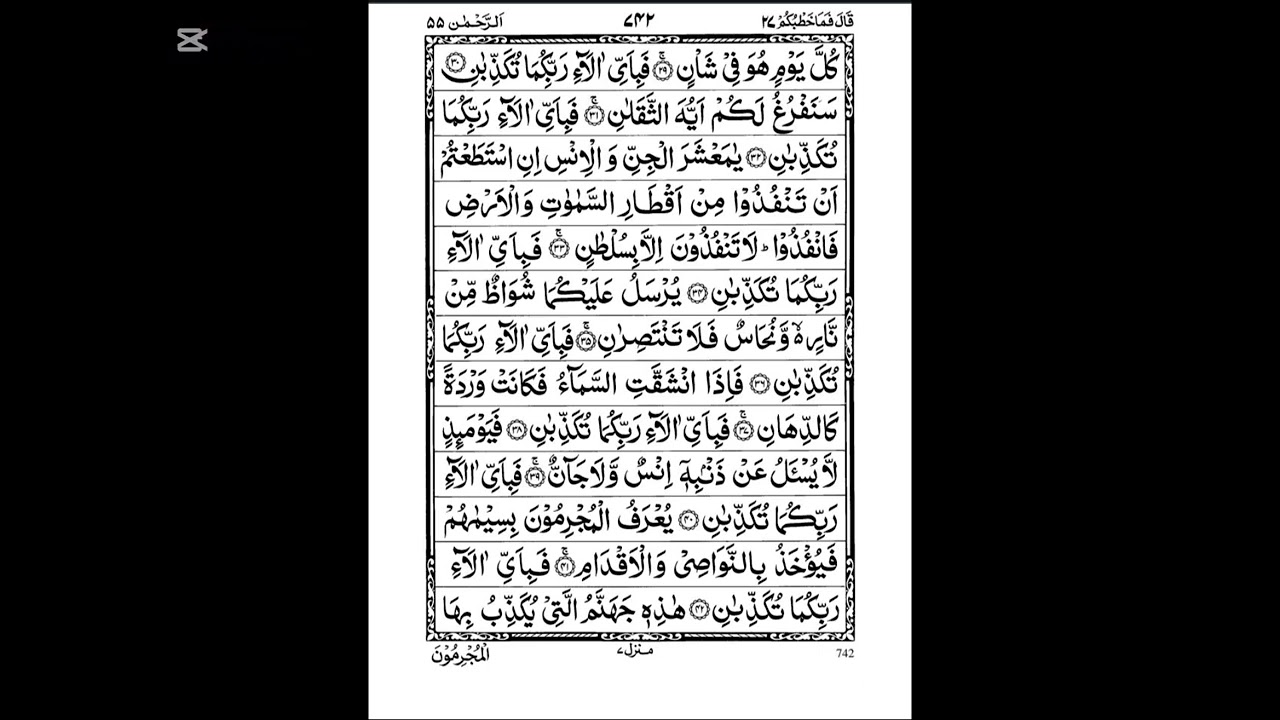 قَالَ فَمَا خَطْبُكُمْ ٢٧ ٧٤٢ اَلرَّحْمٰن ٥٥
كُلَّ يَوْمٍ هُوَ فِيْ شَاْنٍ ۚ‏﴿۲۹﴾ فَبِاَيِّ اٰلَآءِ رَبِّكُمَا تُكَذِّبٰنِ ﴿۳۰﴾
سَنَفْرُغُ لَكُمْ اَيُّهَ الثَّقَلٰنِ ۚ﴿۳۱﴾ فَبِاَيِّ اٰلَآءِ رَبِّكُمَا
تُكَذِّبٰنِ ﴿۳۲﴾ يٰمَعْشَرَ الْجِنِّ وَ الْاِنْسِ اِنِ اسْتَطَعْتُمْ
اَنْ تَنْفُذُوْا مِنْ اَقْطَارِ السَّمٰوٰتِ وَالْاَرْضِ
فَانْفُذُوْا ؕ لَا تَنْفُذُوْنَ اِلَّا بِسُلْطٰنٍ ۚ﴿۳۳﴾ فَبِاَيِّ اٰلَآءِ
رَبِّكُمَا تُكَذِّبٰنِ ﴿۳۴﴾ يُرْسَلُ عَلَيْكُمَا شُوَاظٌ مِّنْ
نَّارٍ ۙ۬ وَّ نُحَاسٌ فَلَا تَنْتَصِرٰنِ ۚ﴿۳۵﴾ فَبِاَيِّ اٰلَآءِ رَبِّكُمَا
تُكَذِّبٰنِ ﴿۳۶﴾ فَاِذَا انْشَقَّتِ السَّمَآءُ فَكَانَتْ وَرْدَةً
كَالدِّهَانِ ۚ﴿۳۷﴾ فَبِاَيِّ اٰلَآءِ رَبِّكُمَا تُكَذِّبٰنِ ﴿۳۸﴾ فَيَوْمَئِذٍ
لَّا يُسْـَٔلُ عَنْ ذَنْۢبِهٖۤ اِنْسٌ وَّلَا جَآنٌّ ۚ﴿۳۹﴾ فَبِاَيِّ اٰلَآءِ
رَبِّكُمَا تُكَذِّبٰنِ ﴿۴۰﴾ يُعْرَفُ الْمُجْرِمُوْنَ بِسِيْمٰهُمْ
فَيُؤْخَذُ بِالنَّوَاصِيْ وَالْاَقْدَامِ ۚ﴿۴۱﴾ فَبِاَيِّ اٰلَآءِ
رَبِّكُمَا تُكَذِّبٰنِ ﴿۴۲﴾ هٰذِهٖ جَهَنَّمُ الَّتِيْ يُكَذِّبُ بِهَا
الْمُجْرِمُوْنَ منزل ٧ 742